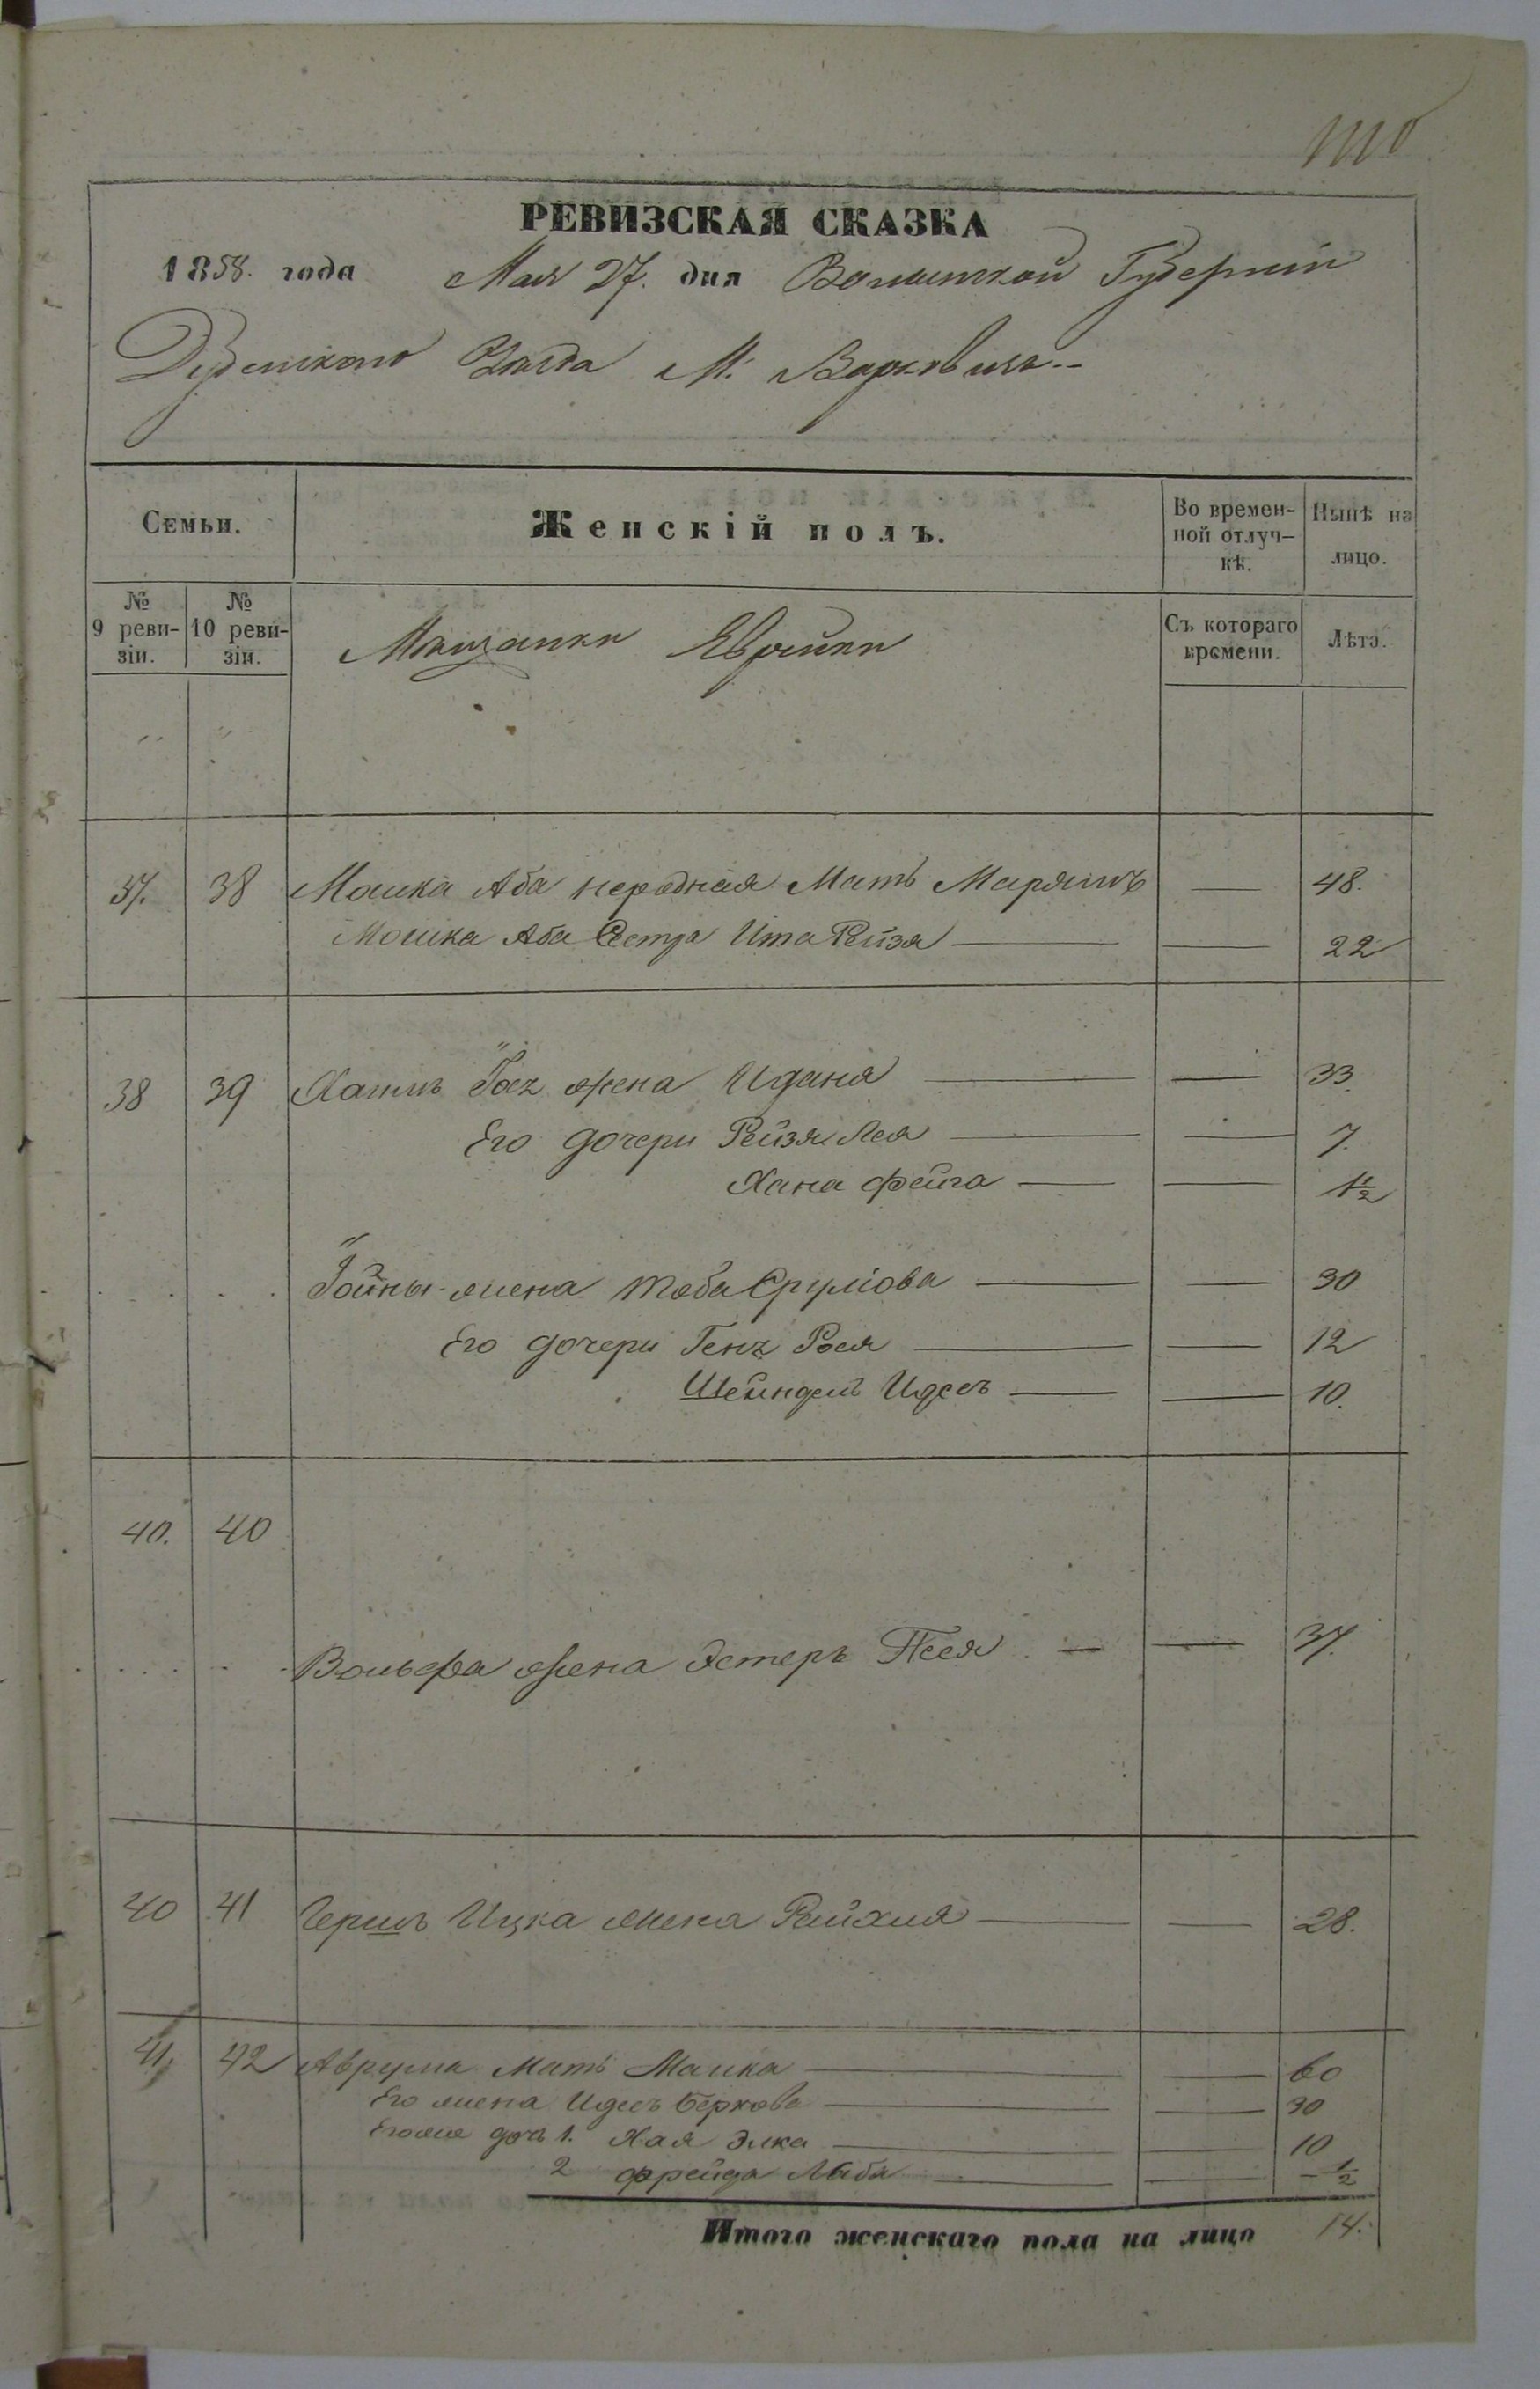 РЕВИЗСКАЯ СКАЗКА
1858. года Мая 27. дня Волынской Губерніи
Дубенскаго Уѣзда М. Варковичь
Семьи. Женскій полъ. Во времен- Нынѣ на
ной отлуч- лицо.
кѣ.
№ № Съ котораго Лѣта.
9 реви- 10 реви- времени.
зіи. зіи.
Мѣщанки Еврейки
37. 38 Мошка Аба неродная Мать Марямъ — 48.
Мошка Аба Сестра Ита Рейзя — 22
38 39 Хаимъ жена Идыня — 33.
Его дочери Рейзя Лея — 7.
Хана фейга — 1½
Іойны жена Тоба Срулiова — 30
Его дочери Генъ Рося — 12
Шейндель Идесъ — 10.
40. 40
Вольфа жена Эстеръ Песя — 37.
40 41 Гершъ Ицка жена Рейхля — 28.
41, 42 Аврума Мать Малка — 60
Его жена Идесъ Беркова — 30
Егоже дочь 1. Хая Элка — 10
2 фрейда Либа — ½
Итого женскаго пола на лицо 14.